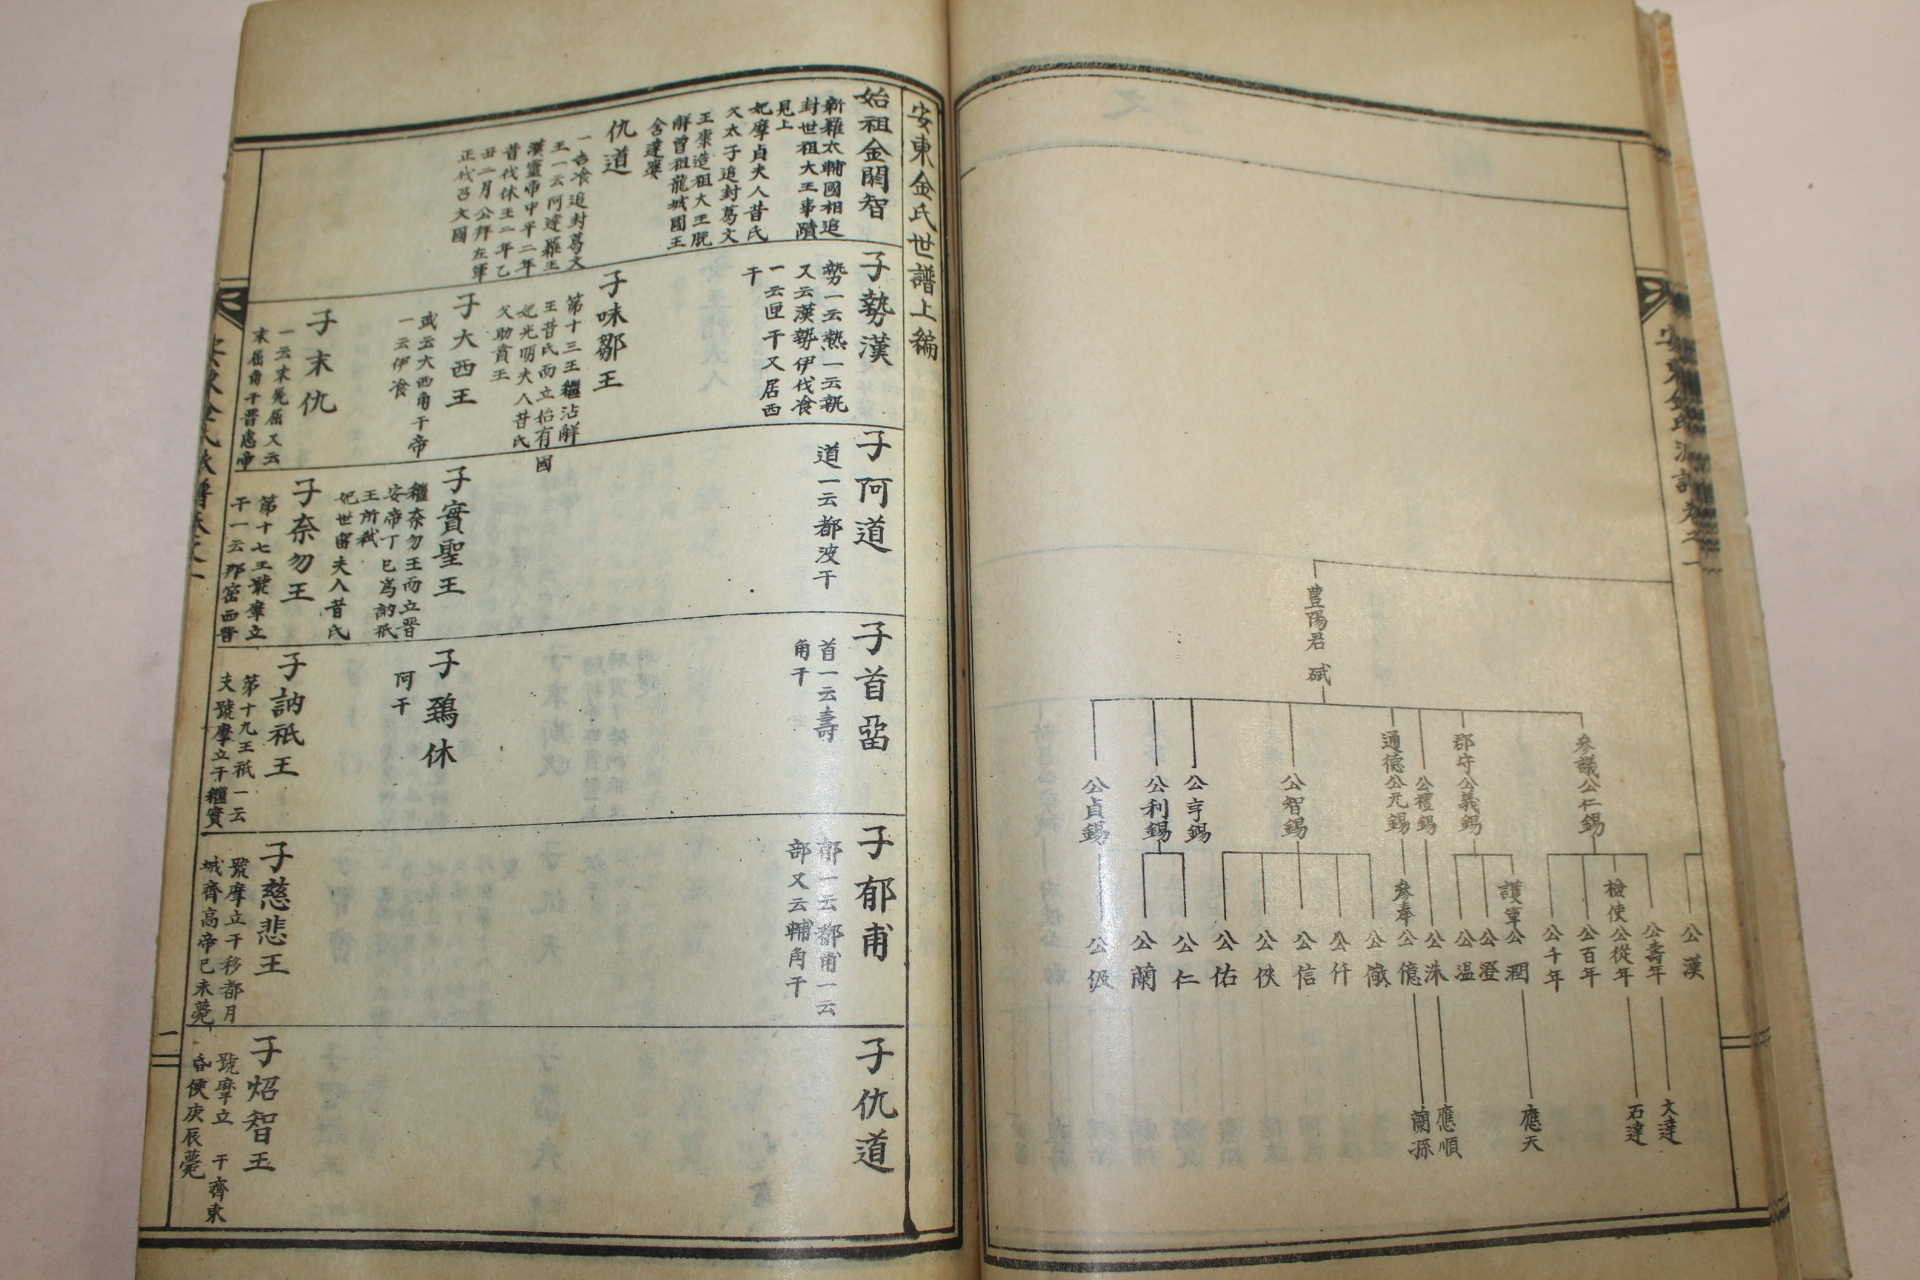 豊陽君 斌
參議公仁錫
郡守公義錫
公禮錫
通德公元錫
公智錫
公亨錫
公利錫
公貞錫
公漢
公壽年
檢使公從年
公百年
公千年
護軍公潤
公澄
公温
公洙
參奉公億
公儆
公仟
公信
公俠
公佑
公仁
公蘭
公伋
文達
石達
應天
應順
蘭孫
安東金氏世譜上編
始祖金閼智
新羅太輔國相追
封世祖大王事蹟
見上
子勢漢
勢一云熱一云
又云漢勢伊伐飡
一云匣干又居西
干
子阿道
道一云都波干
子首留
首一云壽
角干
子郁甫
郁一云都甫一云
部又云輔角干
子仇道
妃摩貞夫人昔氏
父太子追封葛文
王康造祖大王脫
解曾祖龍城國王
含達婆
仇道
一吉飡追封葛文
王一云阿達羅王
漢靈帝中平二年
昔伐休王二年乙
丑二月公拜左軍
正伐召文國
子味鄒王
第十三王繼沾解
王昔氏而立始有國
妃光明夫人昔氏
父助賁王
子大西王
或云大西角干帝
一云伊飡
子末仇
一云末兇屈又云
末屈角干晋惠帝
子實聖王
繼奈勿王而立晋
安帝丁巳爲訥祇
王所弑
妃世留夫人昔氏
子奈勿王
第十七王號摩立
干一云那密西晋
子鵄休
阿干
子訥祇王
第十九王祇一云
支號摩立干繼實
子慈悲王
號摩立干移都月
城齊高帝己未薨
子炤智王
號摩立 干齊東
昏侯庚辰薨
一